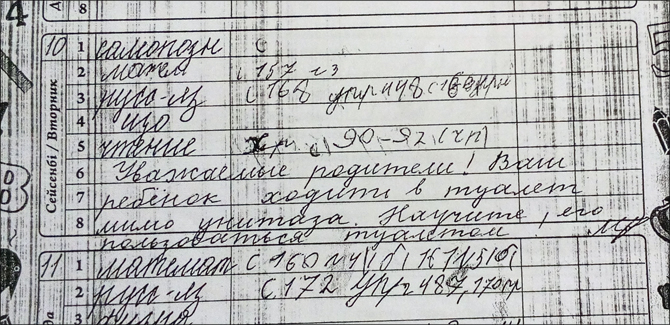 4
8
Сейсенбі / Вторник
10 1 самопозн с
2 матем с 157 №3
3 русс-яз с 168 упр 448 с 169 упр
4 изо
5 чтение хр. с 90-92 (чп)
6 Уважаемые родители! Ваш
7 ребёнок ходить в туалет
8 мимо унитаза. Научите, его
пользоваться туалетом
11 1 математ с 160 №4
2 русс-яз с 172 упр 487, 170
3